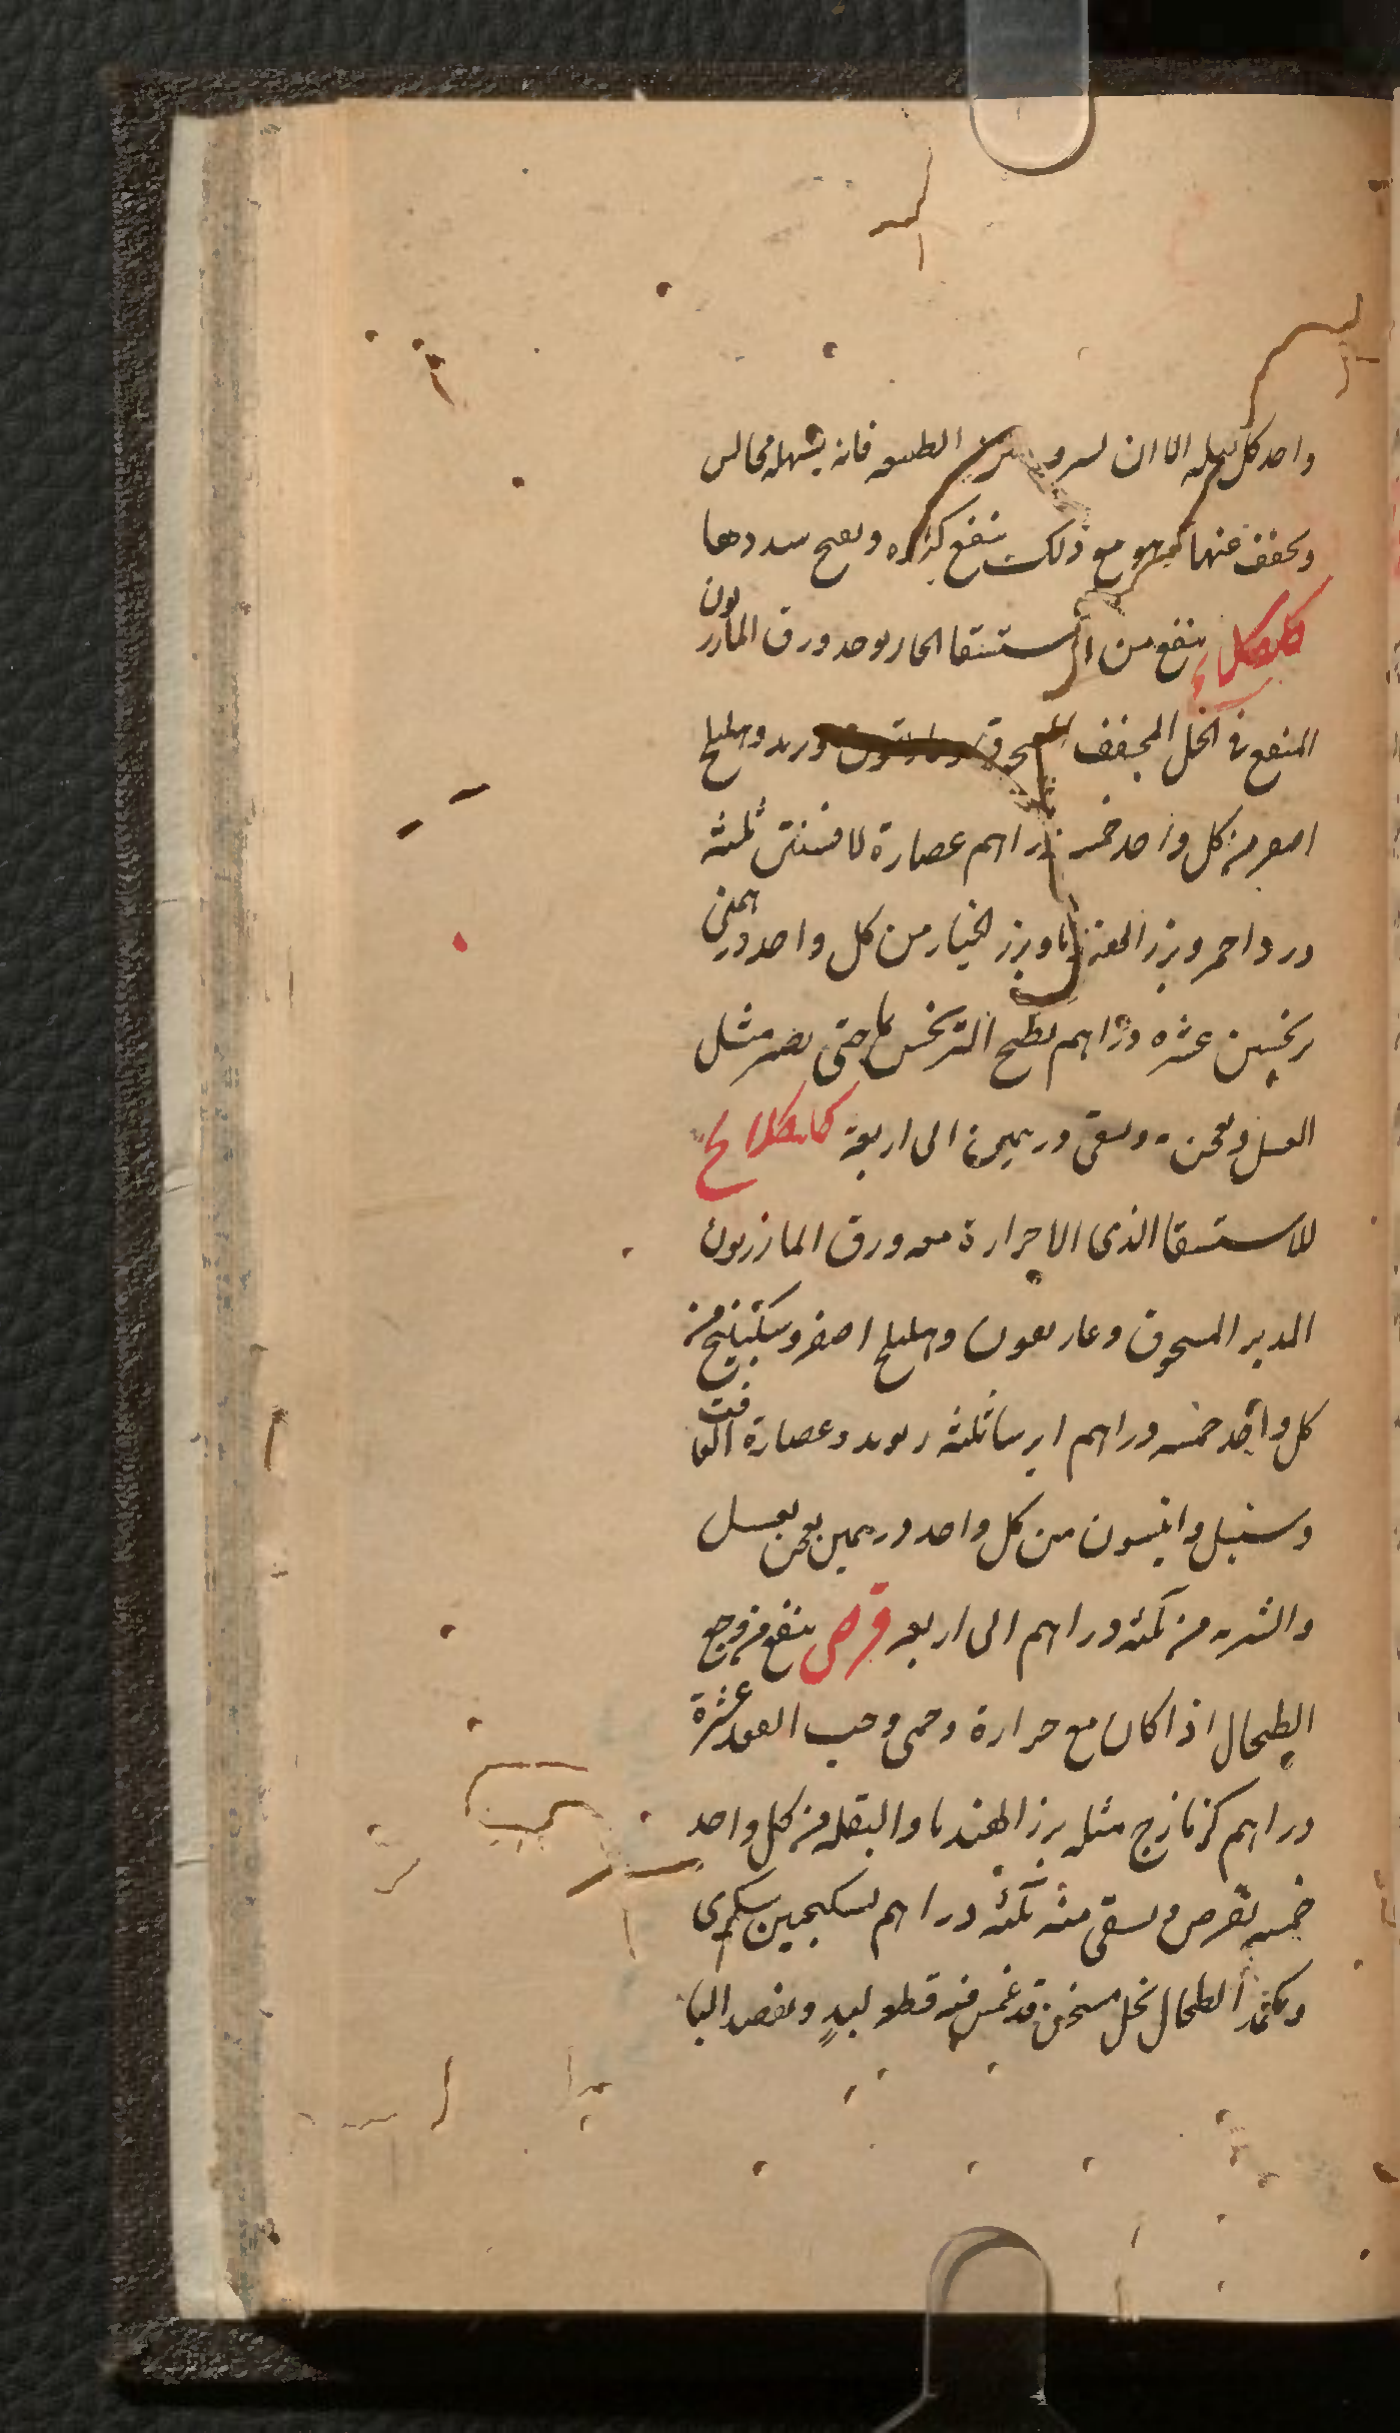 واحد كل ليله الا ان الطبيعه فانه يسهله مجالس
ويجفف عنها فهو مع ذلك ينفع كثيره ويفتح سددها
كلكلانج ينفع من الاستسقا الحار يوخذ ورق المازريون
المنقع في الخل المجفف المسحوق وريوند وهليلج
اصفر من كل واحد خمسه دراهم عصارة الافسنتين ثلثه
ورد احمر وبزر الهندبا وبزر الخيار من كل واحد درهمين
ترنجبين عشره دراهم يطبخ الترنجبين بماء حتى يصير مثل
العسل ويعجن به ويسقى درهمين الى اربعة كلكلانج
للاستسقا الذى لا حرارة معه ورق المازريون
المدبر المسحوق وغاريقون وهليلج اصفر وسكبينج من
كل واحد خمسه دراهم ايرسا ثلثه ريوند وعصارة الغافت
وسنبل وانيسون من كل واحد درهمين يعجن بعسل
والشربه منه ثلثه دراهم الى اربعه قرص ينفع من وجع
الطحال اذا كان مع حرارة وحمى وحب الفقد عشرة
دراهم كزمازج مثله بزر الهندبا والبقله من كل واحد
خمسه يقرص ويسقى منه ثلثه دراهم بسكنجبين سكرى
ويكمد الطحال بخل مسخن قد غمس فيه قطعه لبد ويفصد البا